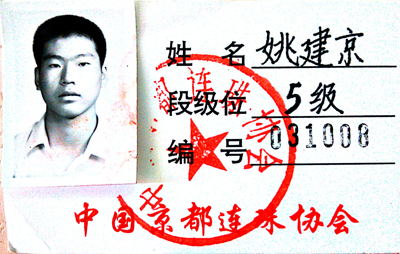 姓 名 姚建京
段级位 5级
编 号 031008
中国京都连珠协会